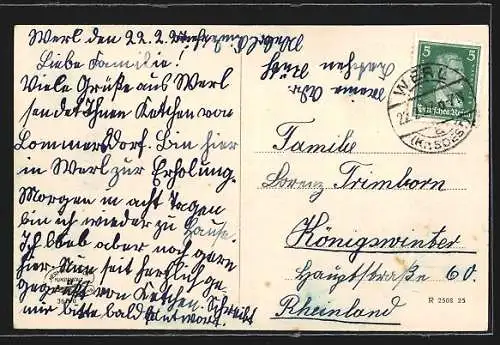 Werl den 22.2.
Liebe Familie!
Viele Grüße aus Werl
sendet Ihnen Ketchen von
Lommersdorf. Bin hier
in Werl zur Erholung.
Morgen in acht Tagen
bin ich wieder zu Hause.
Ich bleb aber noch gare
hier. Nun seit herzlich ge-
gegrüßt von Ketchen. Schreibt
mir bitte bald Antwort.
Meine Adr.
Ketchen
5
Deutsches Reich
WERL
(KR. SOEST)
Familie
Lorenz Trimborn
Königswinter
Hauptstraße 60.
Rheinland
R 2506 25